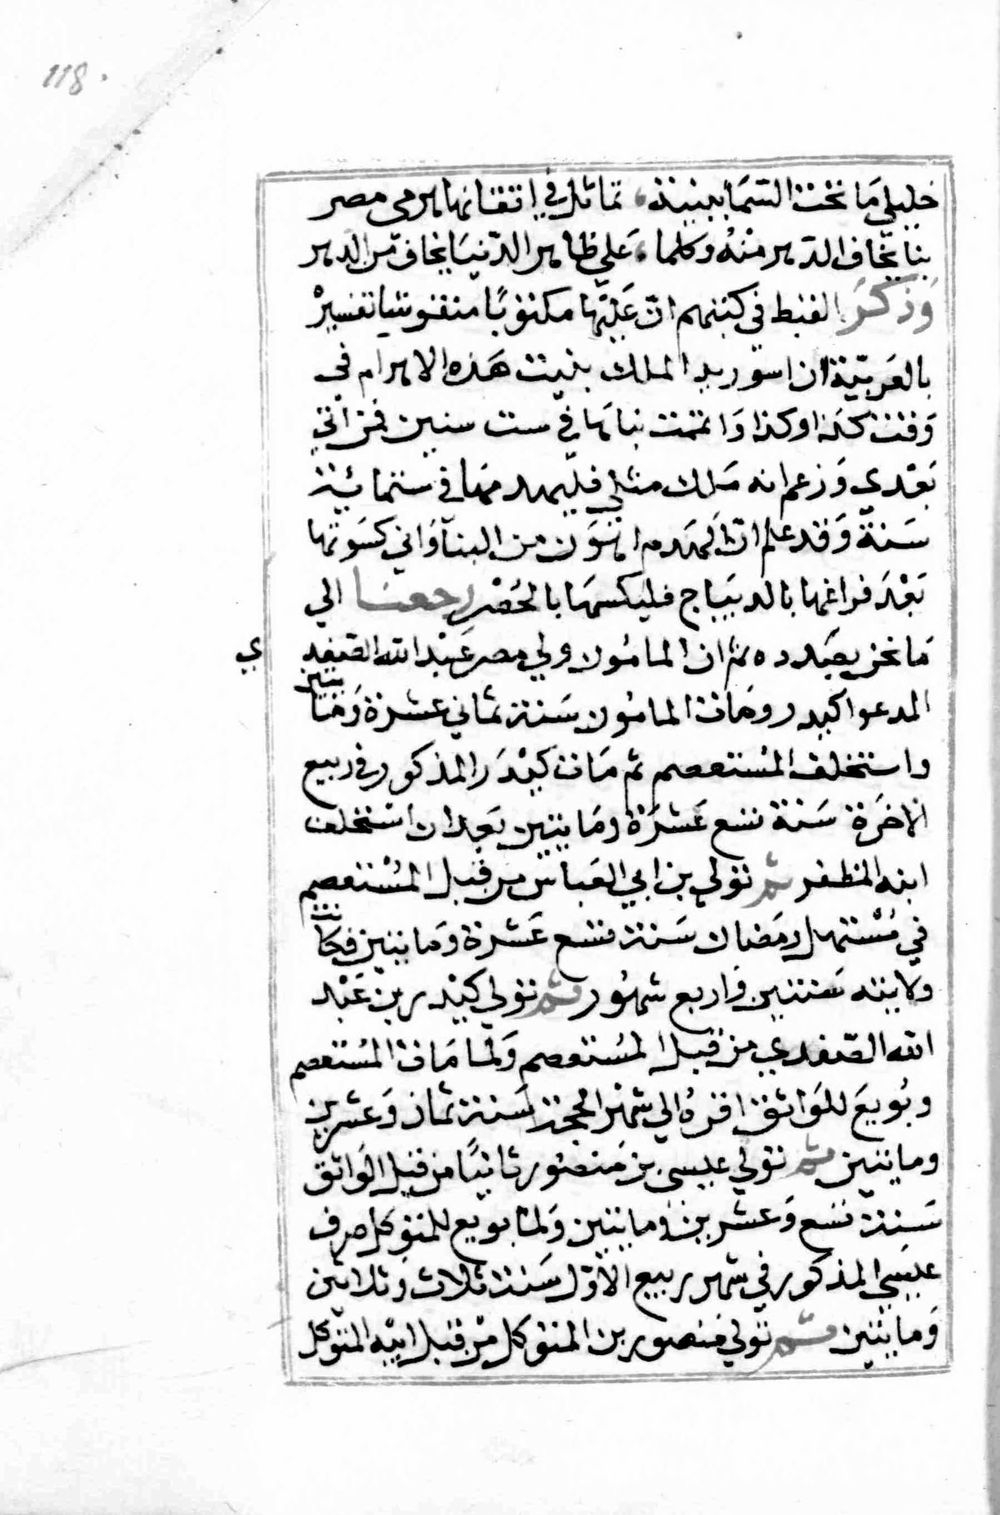 118
خليلي ما تحت السما بنية، تماثل في اتقانها هرمي مصر
بنا يخاف الدهر منه وكلما، علي ظاهر الدنيا يخاف من الدهر
وذكر القبط في كتبهم ان عليها مكتوبا منقوشا تفسيره
بالعربية ان اسوريد الملك بنيت هذه الاهرام في
وقت كذا وكذا واتممت بناها في ست سنين فمن اتي
بعدي وزعم انه ملك مثلي فليهدمها في ستمائة
سنة وقد علم ان الهدم اهون من البنا واني كسوتها
بعد فراغها بالديباج فليكسها بالحصر رجعنا الي
ما نحن بصدده ثم ان المامون ولي مصر عبد الله الصفدي
المدعو اكيدر ومات المامون سنة ثماني عشرة ومايتين
واستخلف المستعصم ثم مات كيدر المذكور في ربيع
الاخرة سنة تسع عشرة ومايتين بعد ان استخلف
ابنه المظفر ثم تولي بن ابي العباس من قبل المستعصم
في مستهل رمضان سنة تسع عشرة ومايتين فكانت
ولايته سنتين واربع شهور ثم تولي كيدر بن عبد
الله الصفدي من قبل المستعصم ولما مات المستعصم
وبويع للواثق اقره الي شهر الحجة سنة ثمان وعشرين
ومايتين ثم تولي عيسى بن منصور ثانيا من قبل الواثق
سنة تسع وعشرين ومايتين ولما بويع للمتوكل صرف
عيسي المذكور في شهر ربيع الاول سنة ثلاث وثلاثين
ومايتين ثم تولي منصور بن المتوكل من قبل ابيه المتوكل